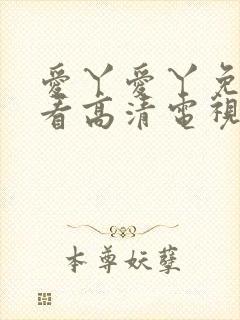 愛丫愛丫免
看高清電視
本尊妖孽